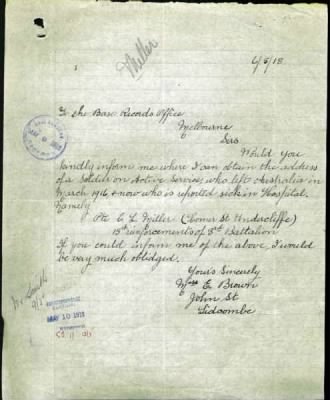 Miller
6/5/18.
To the Base Records Office
Melbourne
Sirs
Would you
kindly inform me where I can obtain the address
of a soldier on Active Service, who left Australia in
March 1916, & now who is reported sick in Hospital.
Namely
Pte C. L. Miller (Homer St Undercliffe)
15th reinforcements of 3rd Battalion
If you could inform me of the above, I would
be very much oblidged.
Yours Sincerely
E. Brown
John St
Lidcombe
MAY 10 1918